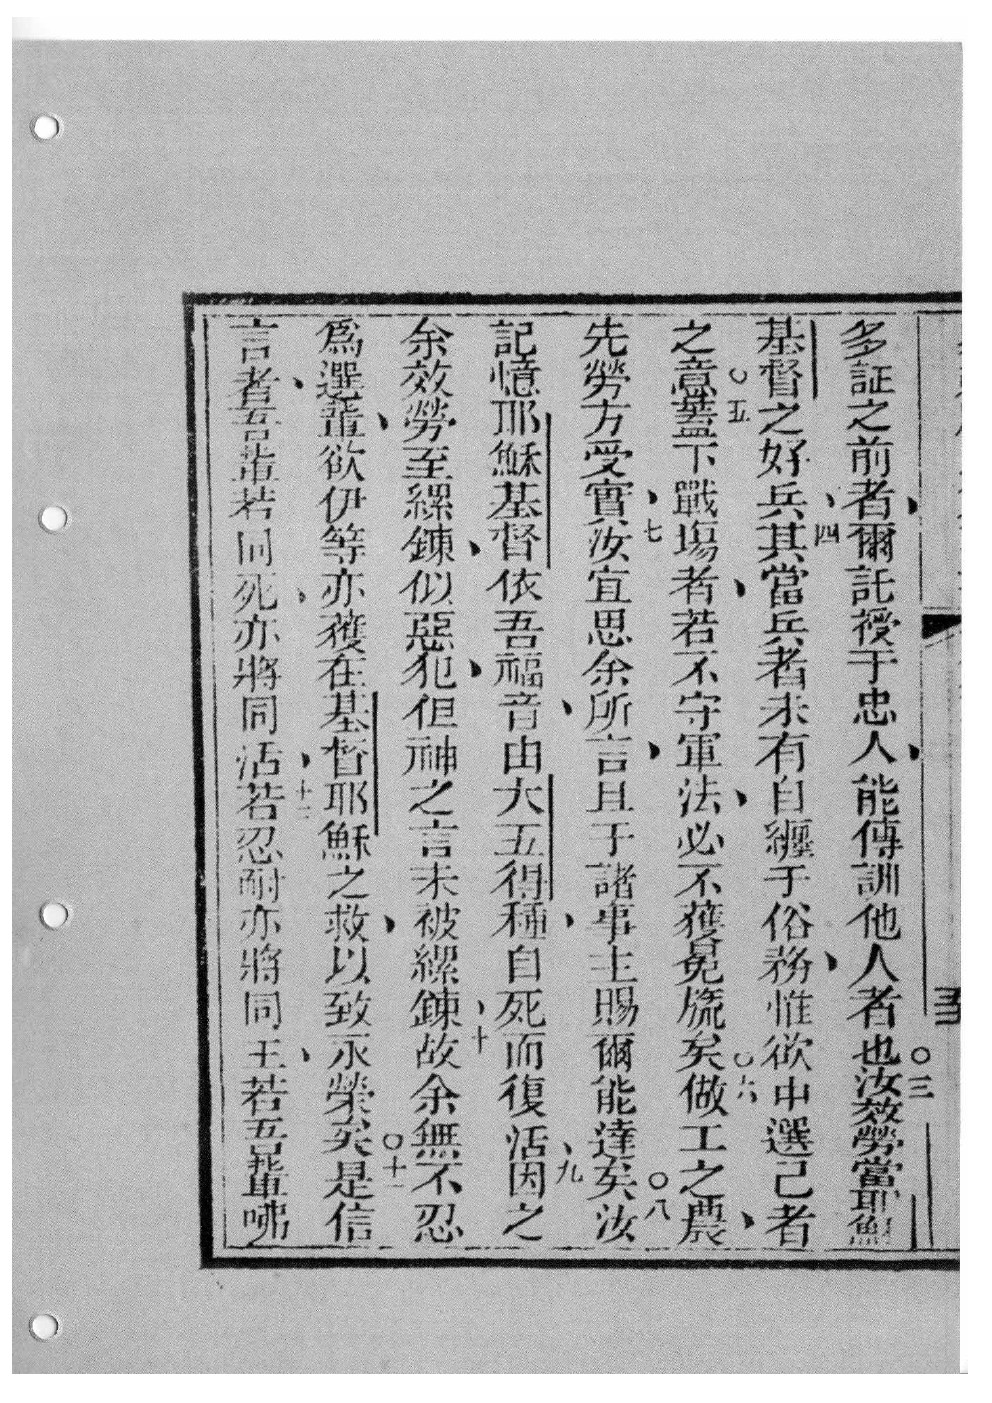 多証之前者爾託授于忠人能傳訓他人者也○三汝效勞當耶穌
基督之好兵四其當兵者未有自纏于俗務惟欲中選己者
之意○五蓋下戰塲者若不守軍法必不獲冕旒矣○六做工之農
先勞方受實七汝宜思余所言且于諸事主賜爾能達矣○八汝
記憶耶穌基督依吾福音由大五得種自死而復活九因之
余效勞至縲鍊似惡犯但神之言未被縲鍊十故余無不忍
爲選輩欲伊等亦獲在基督耶穌之救以致永榮矣○十一是信
言者吾輩若同死亦將同活十二若忍耐亦將同王若吾輩咈